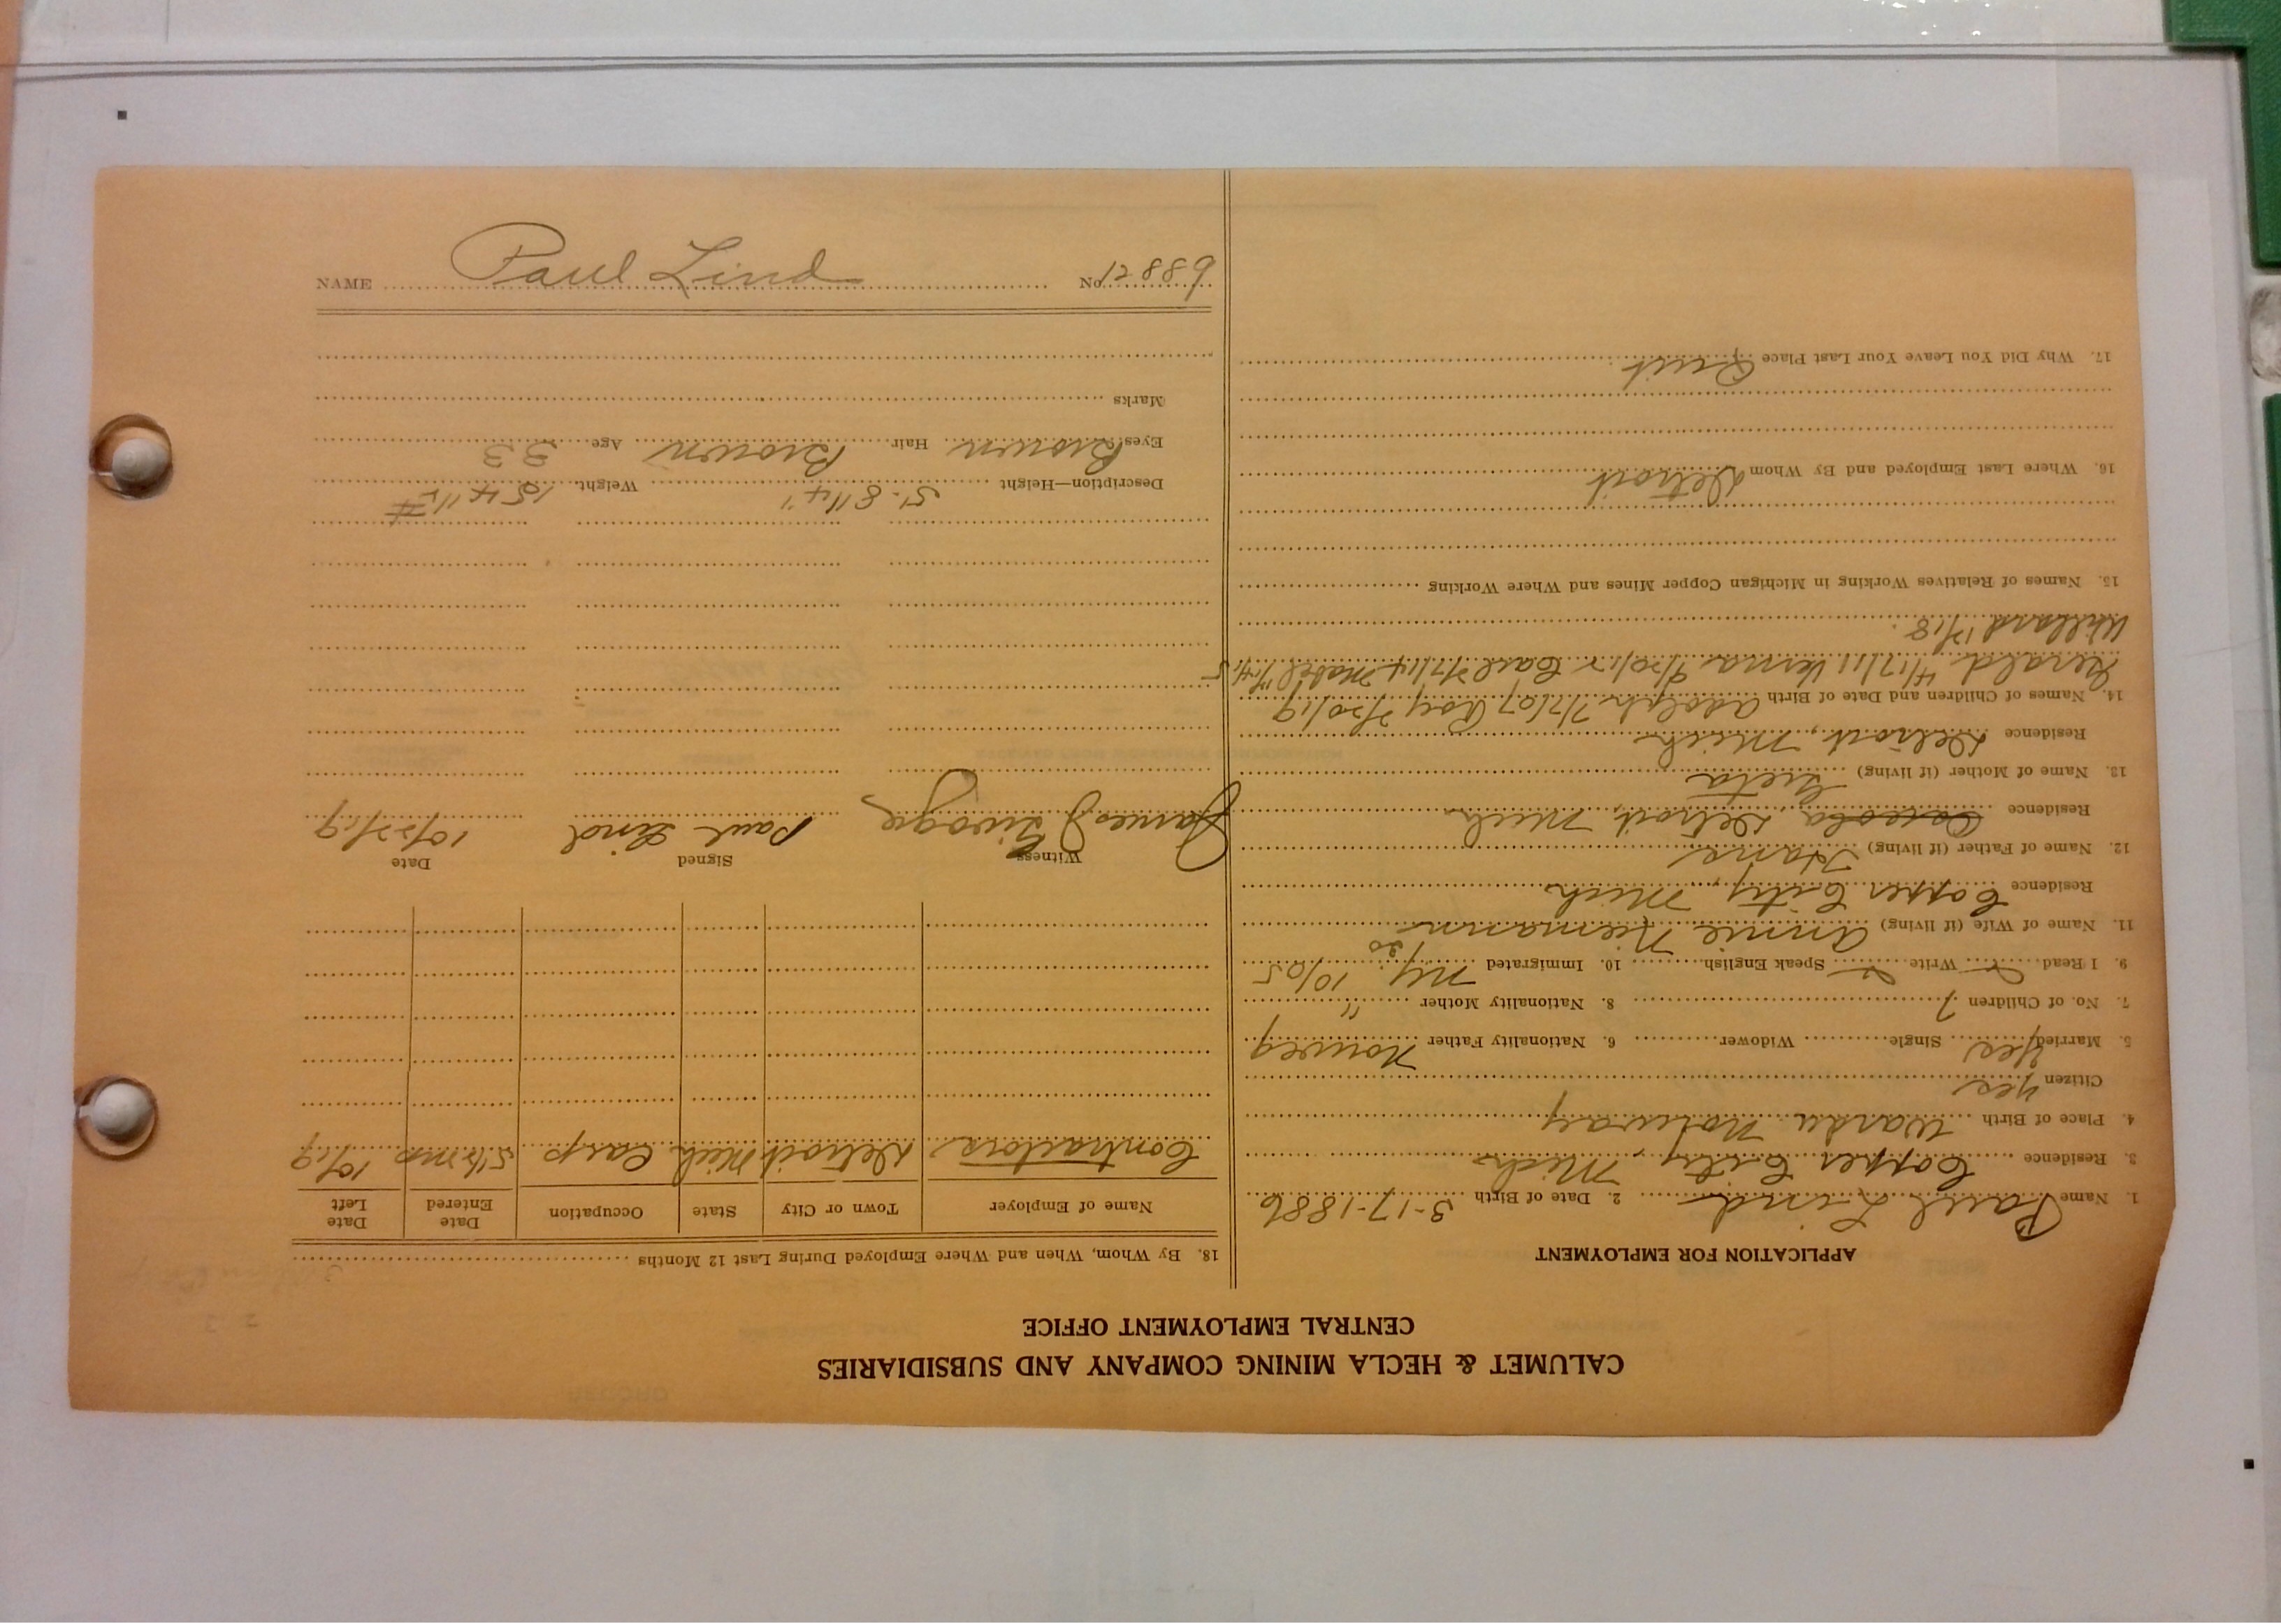 CALUMET & HECLA MINING COMPANY AND SUBSIDIARIES
CENTRAL EMPLOYMENT OFFICE
APPLICATION FOR EMPLOYMENT
1. Name Paul Lind 2. Date of Birth 3-17-1886
3. Residence Copper City, Mich
4. Place of Birth Wardu Norway
Citizen yes
5. Married Yes Single Widower 6. Nationality Father Norweg
7. No. of Children 7 8. Nationality Mother "
9. I Read Write Speak English 10. Immigrated NY. 10/05
11. Name of Wife (if living) Annie Niemann
Residence Copper City, Mich
12. Name of Father (if living) Hans
Residence Osceola Detroit, Mich
13. Name of Mother (if living) Greta
Residence Detroit, Mich
14. Names of Children and Date of Birth Adolph 7/7/07 Roy 7/30/19
Gerald 4/17/11 Verna 9/30/12 Carl 7/7/14 Mabel
Willard 12/18
15. Names of Relatives Working in Michigan Copper Mines and Where Working
16. Where Last Employed and By Whom Detroit
17. Why Did You Leave Your Last Place Quit
18. By Whom, When and Where Employed During Last 12 Months
Name of Employer Town or City State Occupation Date Entered Date Left
Contractors Detroit Mich Carp 5 1/2 mo 10/19
Witness Signed Date
James J Paul Lind 10/22/19
Description—Height 5'-8 1/4" Weight 154 1/2 #
Eyes Brown Hair Brown Age 33
Marks
NAME Paul Lind No. 12889